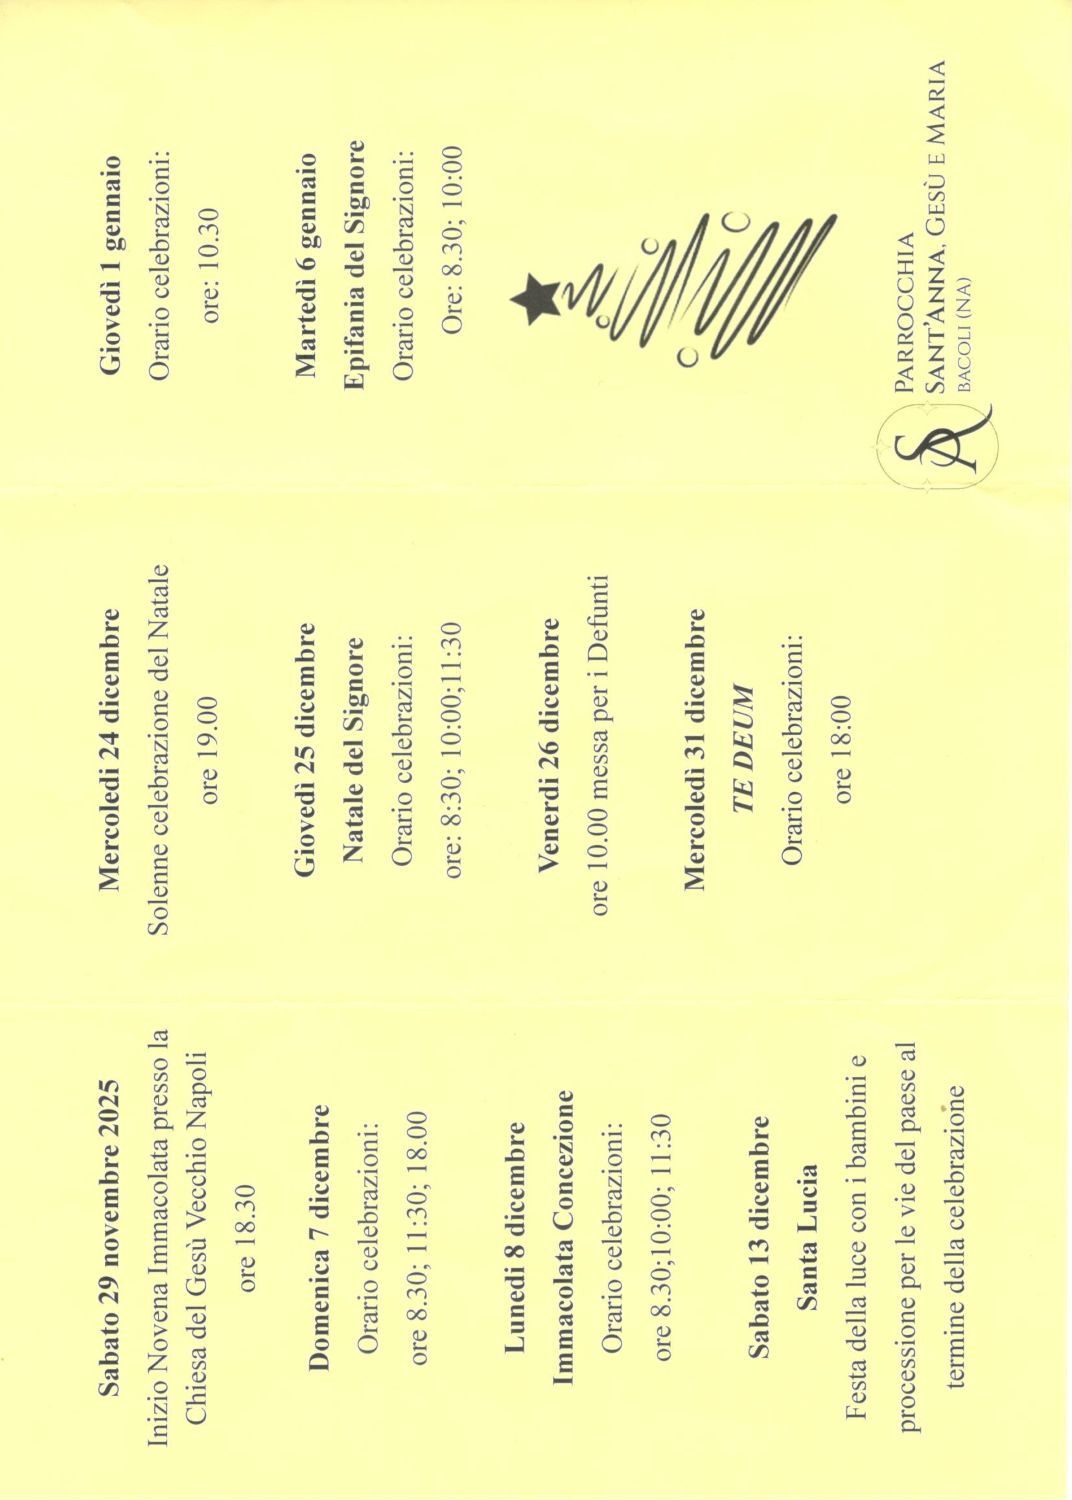 Sabato 29 novembre 2025
Inizio Novena Immacolata presso la
Chiesa del Gesù Vecchio Napoli
ore 18.30
Domenica 7 dicembre
Orario celebrazioni:
ore 8.30; 11:30; 18.00
Lunedì 8 dicembre
Immacolata Concezione
Orario celebrazioni:
ore 8.30;10:00; 11:30
Sabato 13 dicembre
Santa Lucia
Festa della luce con i bambini e
processione per le vie del paese al
termine della celebrazione
Mercoledì 24 dicembre
Solenne celebrazione del Natale
ore 19.00
Giovedì 25 dicembre
Natale del Signore
Orario celebrazioni:
ore: 8:30; 10:00;11:30
Venerdì 26 dicembre
ore 10.00 messa per i Defunti
Mercoledì 31 dicembre
TE DEUM
Orario celebrazioni:
ore 18:00
Giovedì 1 gennaio
Orario celebrazioni:
ore: 10.30
Martedì 6 gennaio
Epifania del Signore
Orario celebrazioni:
Ore: 8.30; 10:00
SA
PARROCCHIA
SANT'ANNA, GESÙ E MARIA
BACOLI (NA)